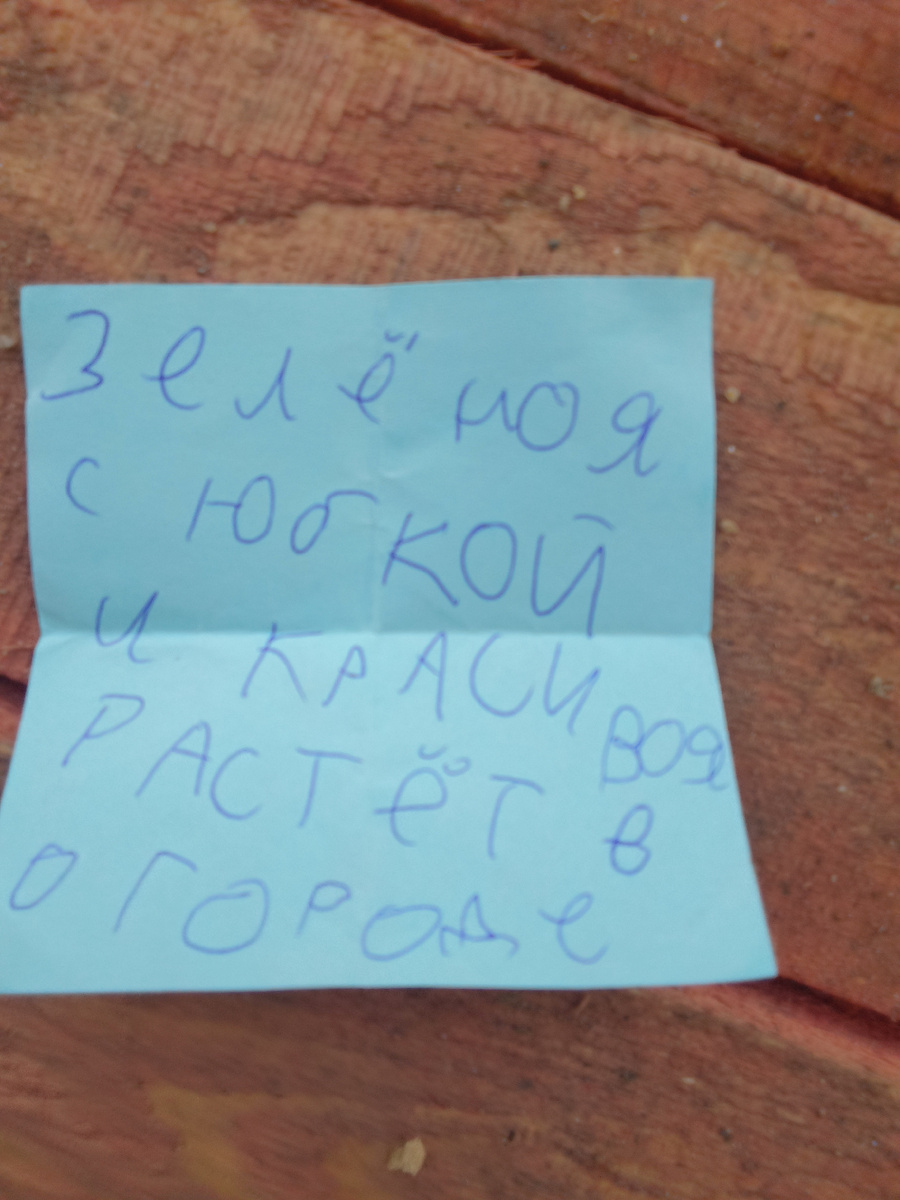 Зелёноя
с юбкой
и КРАСИвоя
РАСТёТ в
огороде